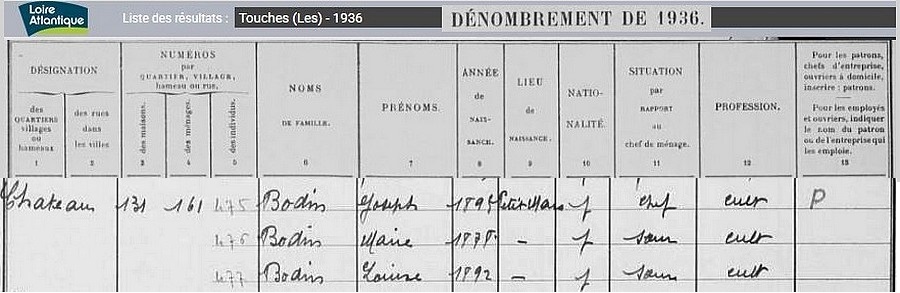 Loire
Atlantique
Liste des résultats : Touches (Les) - 1936
DÉNOMBREMENT DE 1936.
DÉSIGNATION
des QUARTIERS villages ou hameaux
1
des rues dans les villes
2
NUMÉROS par QUARTIER, VILLAGE, hameau ou rue.
des maisons.
3
des ménages.
4
des individus.
5
NOMS DE FAMILLE.
6
PRÉNOMS.
7
ANNÉE de NAISSANCE.
8
LIEU de NAISSANCE.
9
NATIONALITÉ.
10
SITUATION par RAPPORT au chef de ménage.
11
PROFESSION.
12
Pour les patrons, chefs d'entreprise, ouvriers à domicile, inscrire : patrons.
Pour les employés et ouvriers, indiquer le nom du patron ou de l'entreprise qui les emploie.
13
131 161 475 Bodin Joseph Petit Mars f chef cult P
476 Bodin Marie 1878 - f sœur cult
477 Bodin Louise 1892 - f sœur cult